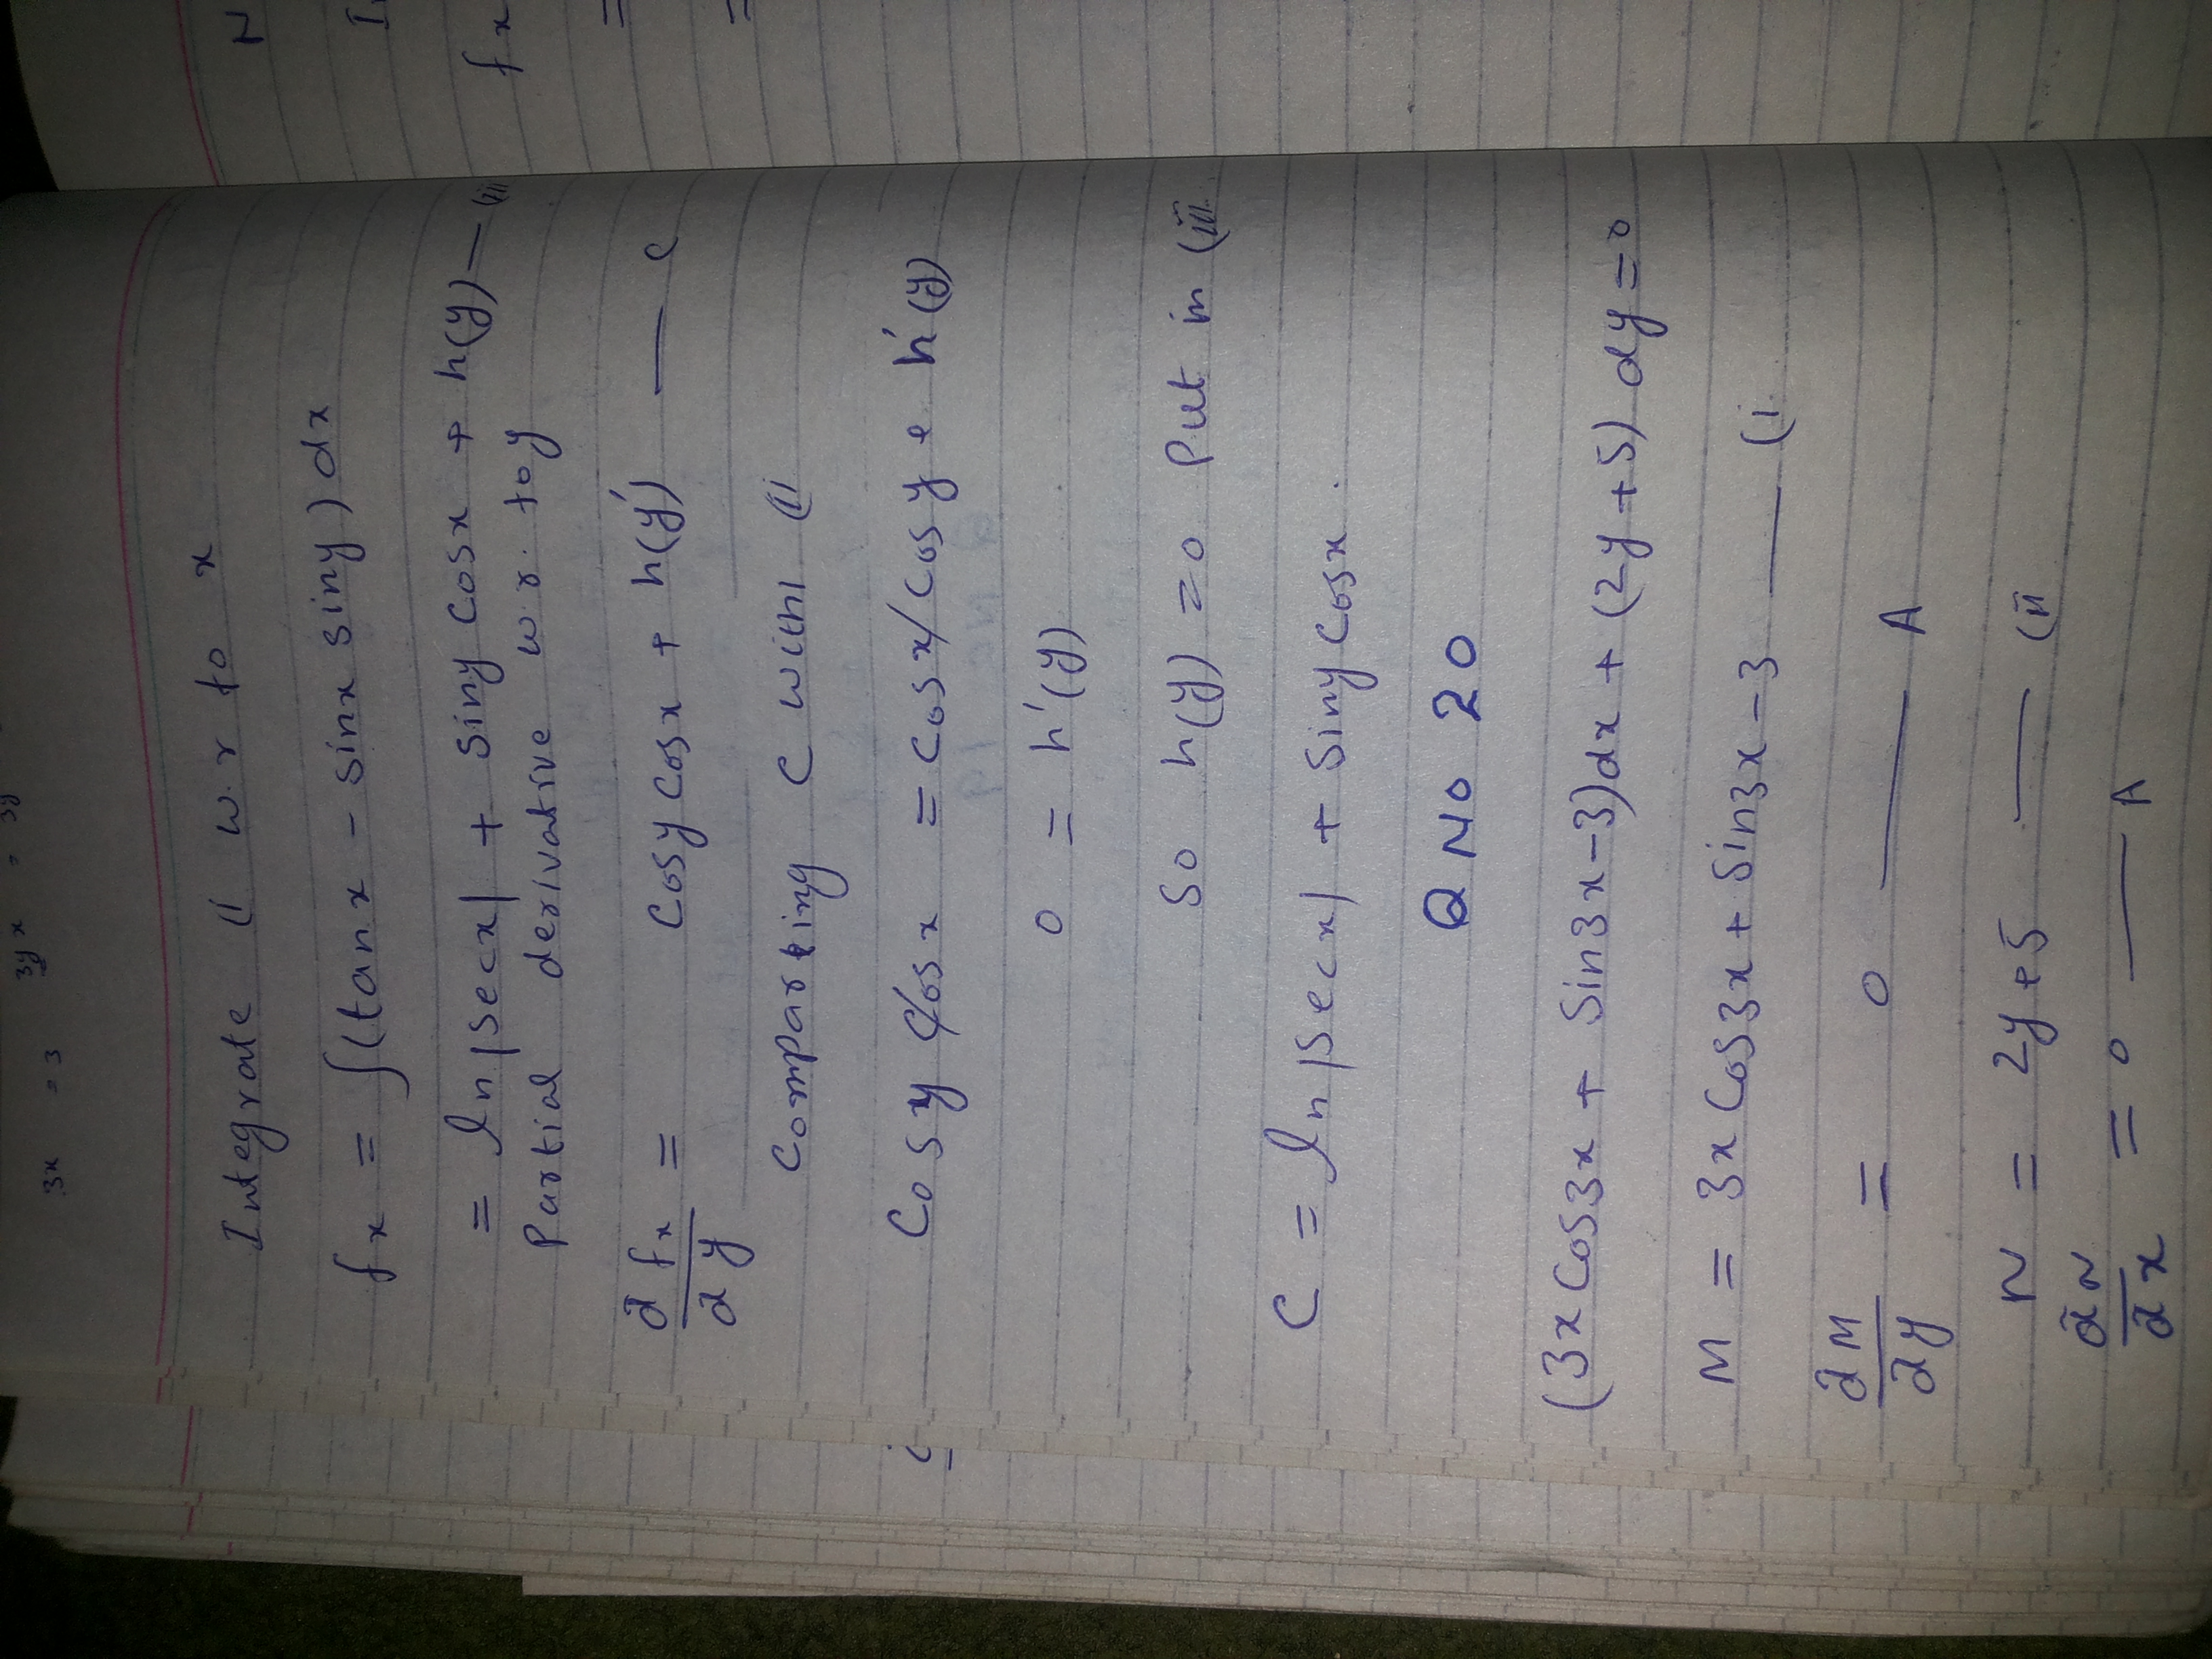 3x = 3 3yx = 3y
Integrate (i w.r to x
fx = ∫(tanx - sinx siny) dx
= ln|secx| + siny cosx + h(y) — (iii
Partial derivative w.r. to y
∂fx/∂y = cosy cosx + h(y)' — c
Comparing c with (ii
Cosy cosx = cosx cosy + h'(y)
0 = h'(y)
So h(y) = 0 Put in (iii
C = ln|secx| + siny cosx.
Q No 20
(3x Cos3x + Sin3x-3)dx + (2y+5) dy = 0
M = 3x Cos3x + Sin3x - 3 — (i
∂M/∂y = 0 — A
N = 2y+5 — (ii
∂N/∂x = 0 — A
N
fx
=
=